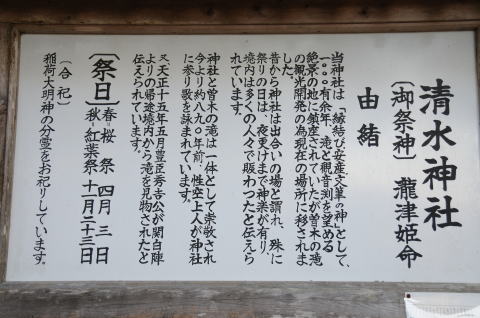 清水神社
〔御祭神〕瀧津姫命
由緒
当神社は、「縁結び安産文筆の神」として、
一〇〇〇有余年、滝と観音渕を望める
絶景の地に鎮座されていたが曽木の滝
の観光開発の為現在の場所に移されま
した。
昔から神社は出合いの場と謂れ、殊に
祭りの日は、夜更けまで神楽が有り、
境内は多くの人々で賑わったと伝えら
れています。
神社と曽木の滝は一体として崇敬され
今より約八九〇年前、性空上人が神社
に参り歌を詠まれています。
又、天正十五年五月豊臣秀吉公が関白陣
よりの帰途境内から滝を見物されたと
伝えられています。
〔祭日〕春=桜祭 四月三日
秋=紅葉祭 十一月二十三日
〔合祀〕
稲荷大明神の分霊をお祀りしています。